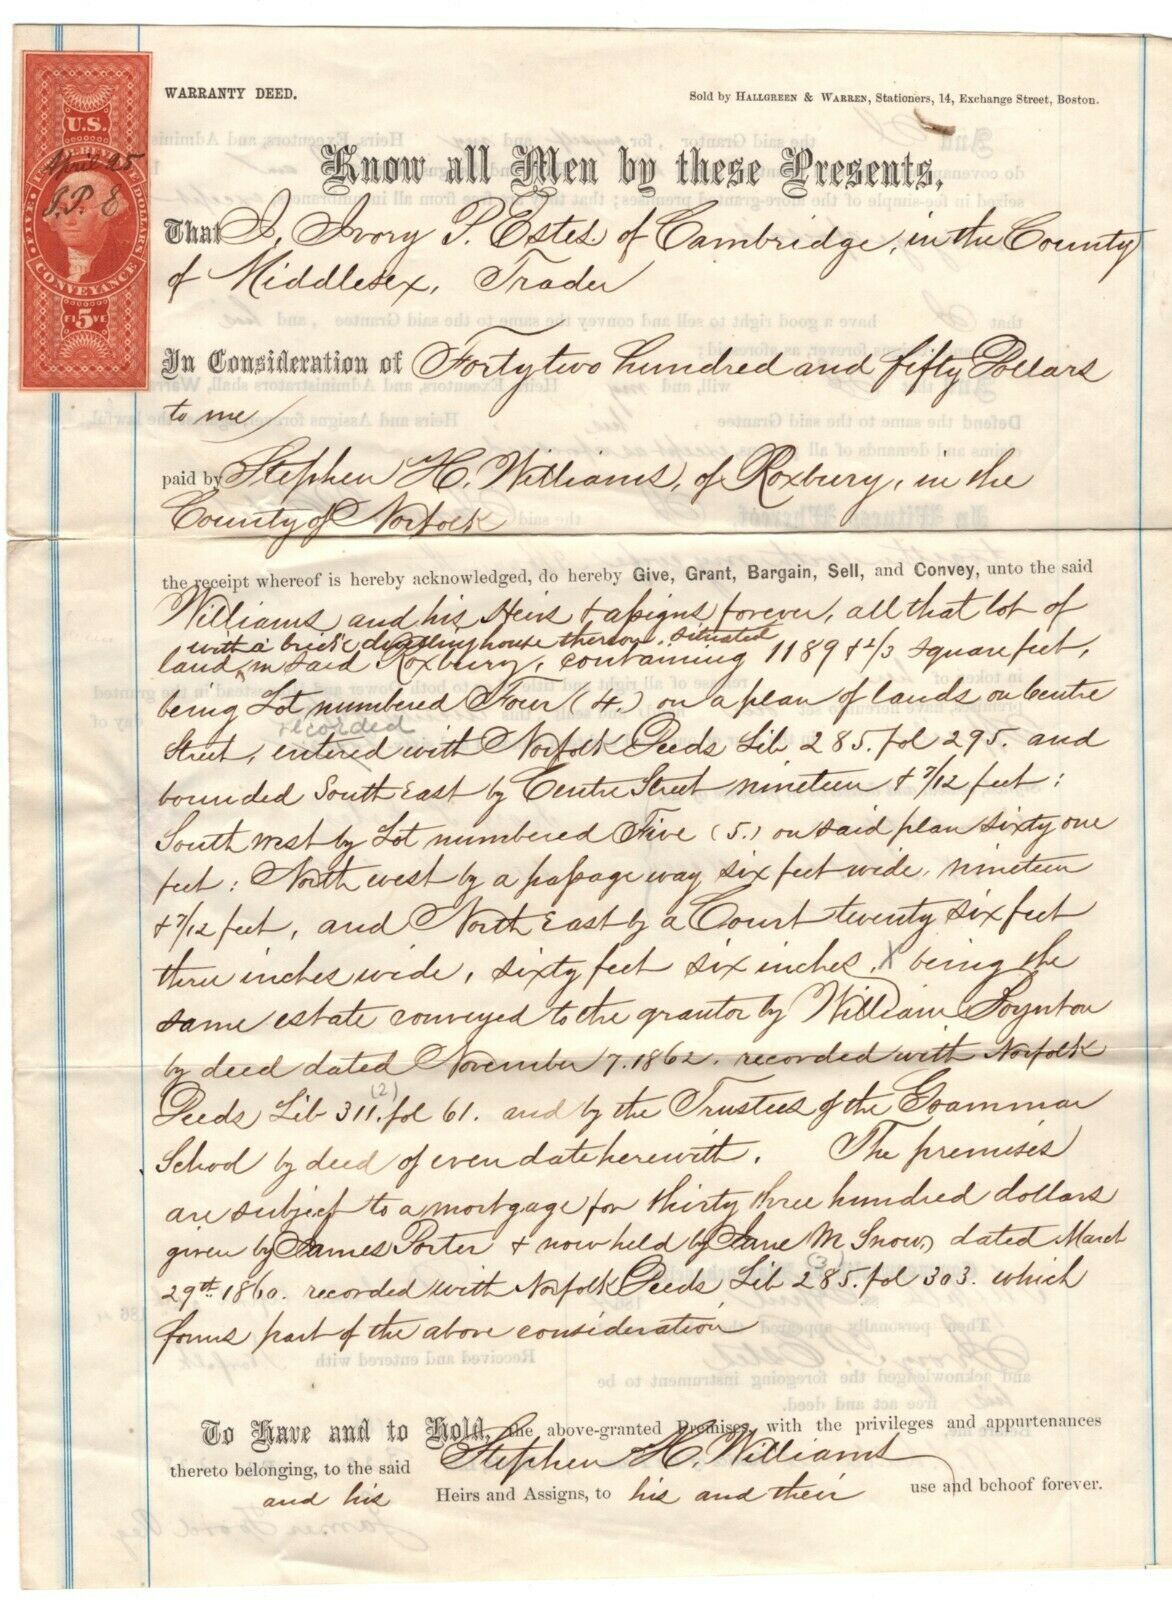 WARRANTY DEED.
Sold by HALLGREEN & WARREN, Stationers, 14, Exchange Street, Boston.
U.S.
INTER. REVENUE
FIVE DOLLARS
April 25
I.P. E
CONVEYANCE
FI 5 VE
Know all Men by these Presents,
That I, Ivory P. Estes. of Cambridge, in the County
of Middlesex, Trader
In Consideration of Forty two hundred and fifty Dollars
to me
paid by Stephen H. Williams, of Roxbury, in the
County of Norfolk
the receipt whereof is hereby acknowledged, do hereby Give, Grant, Bargain, Sell, and Convey, unto the said
Williams and his Heirs & assigns forever, all that lot of
with a brick dwelling house thereon, situated
land in said Roxbury, containing 1189 & 2/3 square feet,
being Lot numbered Four (4.) on a plan of lands on Centre
recorded
Street, entered with Norfolk Deeds Lib 285. fol 295. and
bounded South East by Centre Street nineteen & 7/12 feet:
South west by Lot numbered Five (5.) on said plan sixty one
feet: North west by a passage way six feet wide, nineteen
& 7/12 feet, and North East by a Court twenty six feet
three inches wide, sixty feet six inches, X being the
same estate conveyed to the grantor by William Boynton
by deed dated November 7. 1862. recorded with Norfolk
(2)
Deeds Lib 311. fol 61. and by the Trustees of the Grammar
School by deed of even date herewith. The premises
are subject to a mortgage for thirty three hundred dollars
given by James Porter & now held by Jane M Snow, dated March
(3)
29th 1860. recorded with Norfolk Deeds Lib 285. fol 303. which
forms part of the above consideration
To Have and to Hold, the above-granted Premises, with the privileges and appurtenances
thereto belonging, to the said Stephen H. Williams
and his Heirs and Assigns, to his and their use and behoof forever.